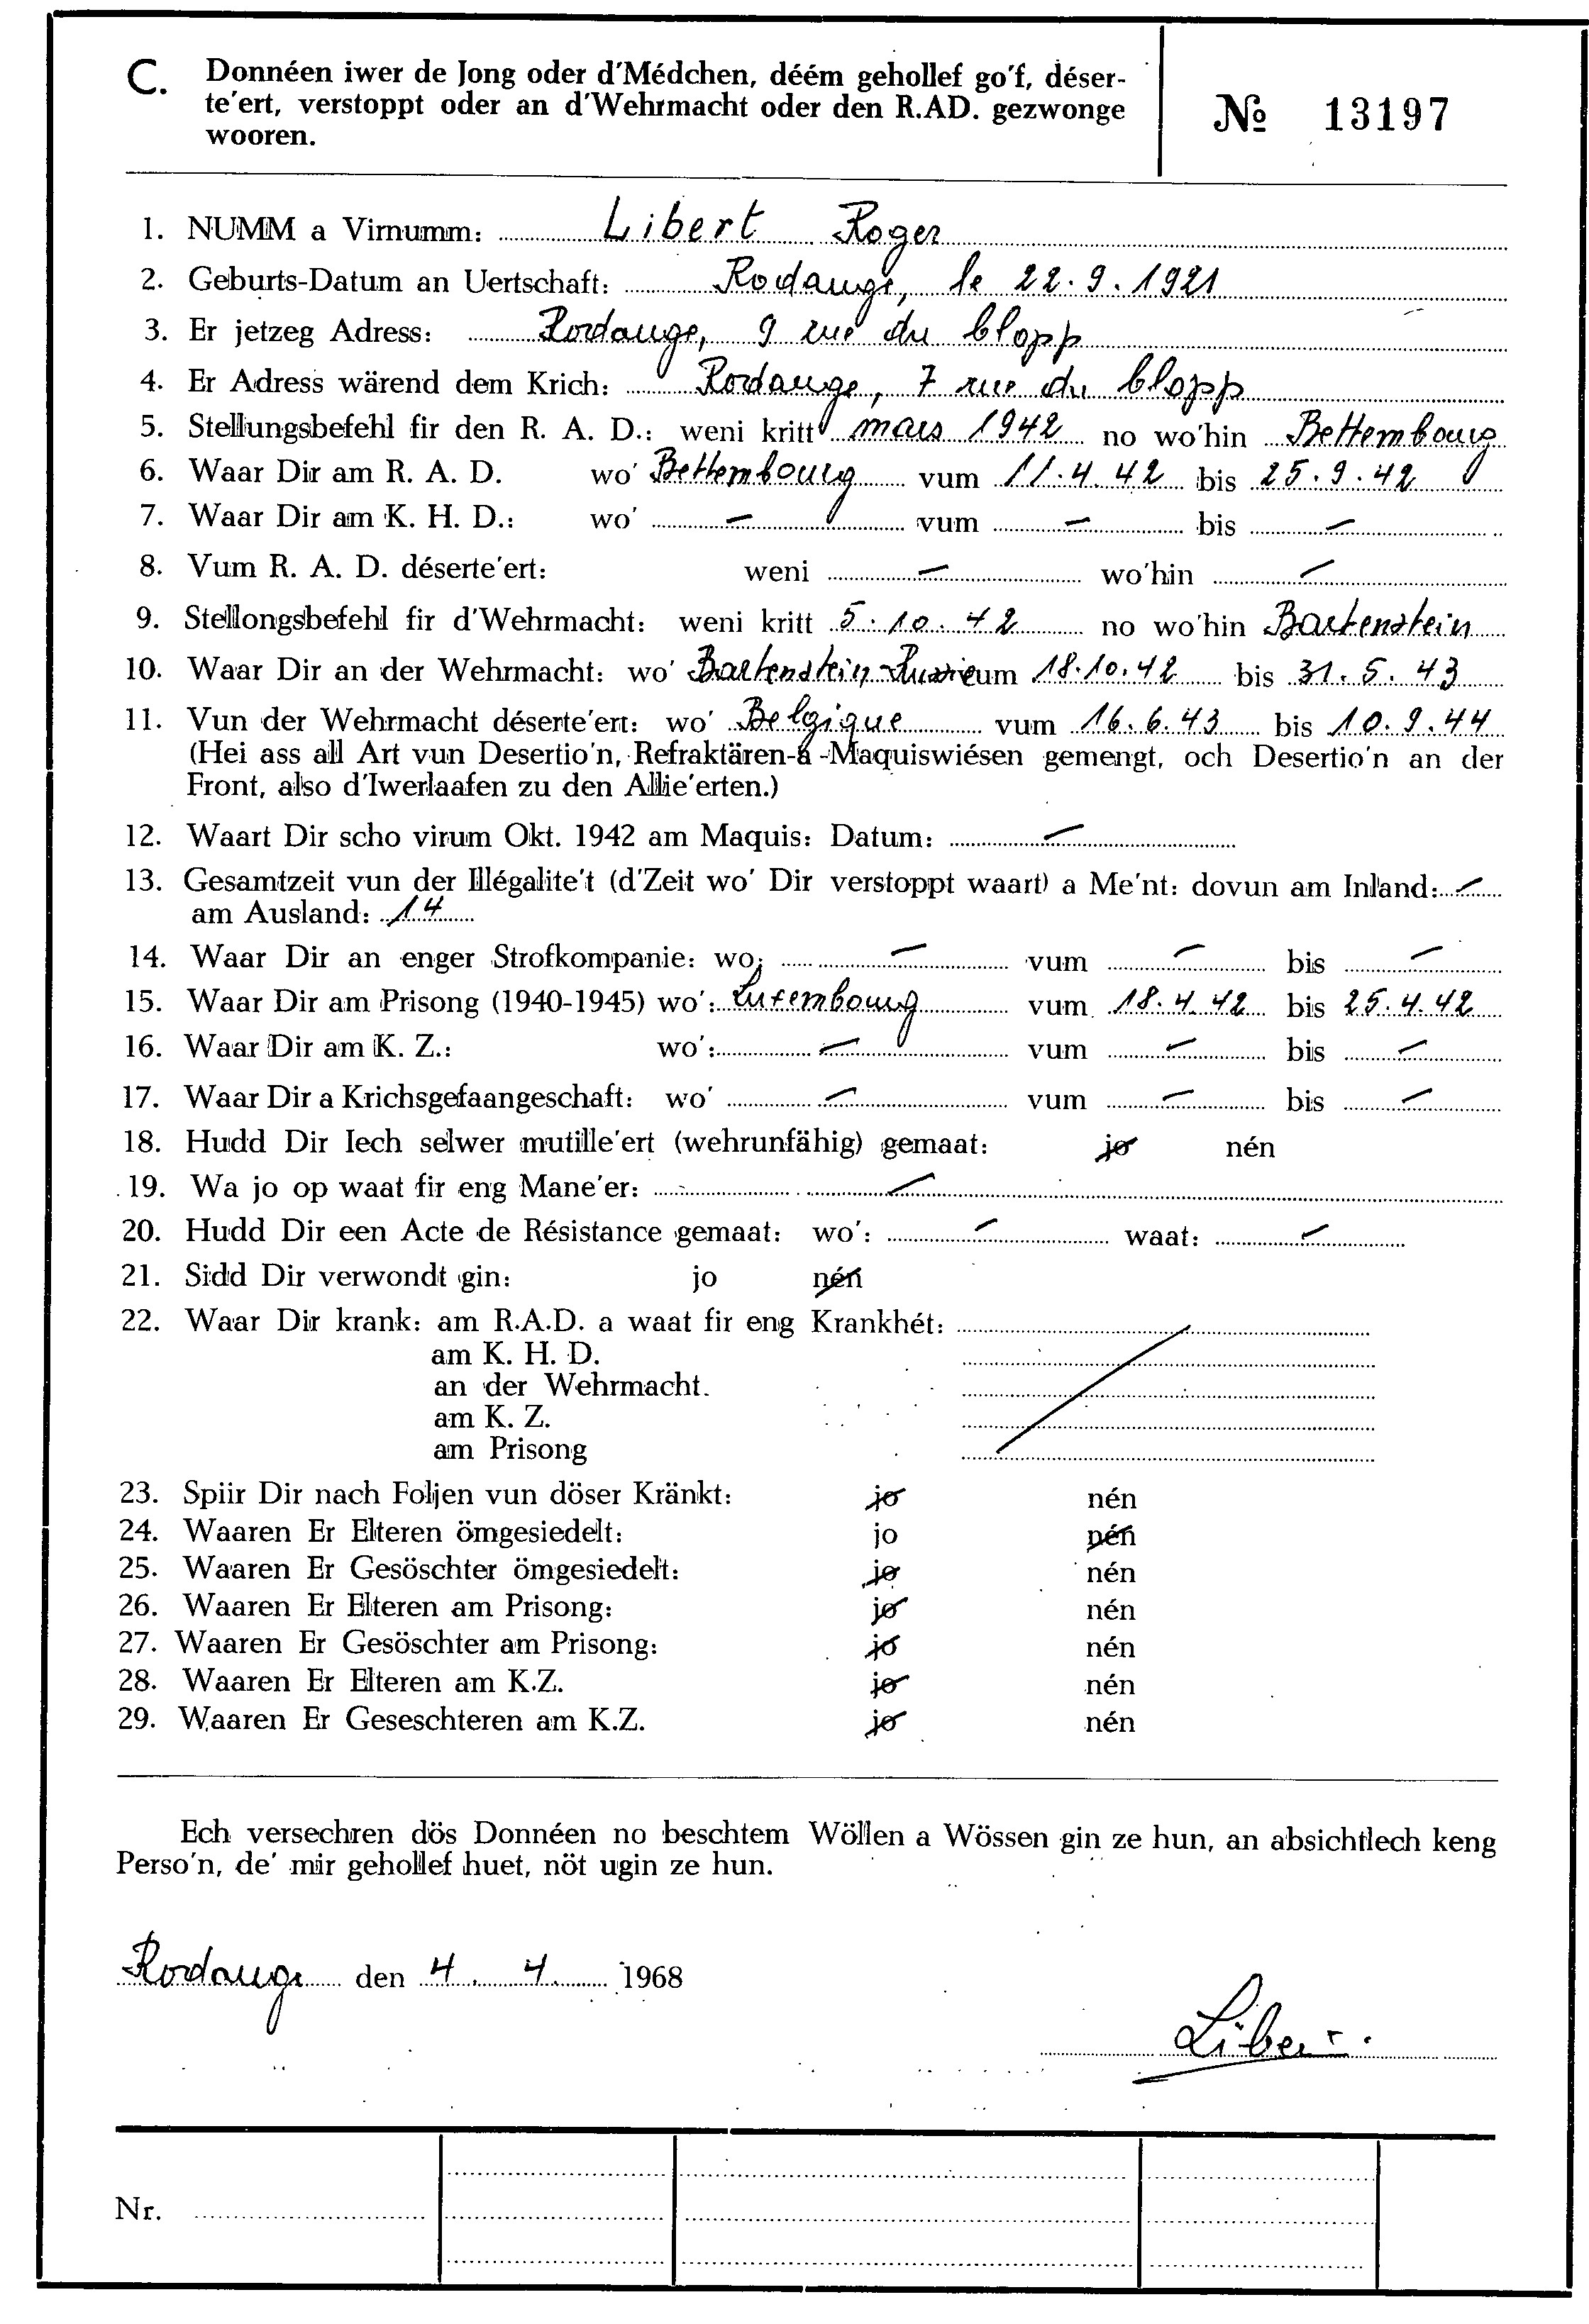 C. Donnéen iwer de Jong oder d'Médchen, déém gehollef go'f, déser-
te'ert, verstoppt oder an d'Wehrmacht oder den R.AD. gezwonge
wooren.
№ 13197
1. NUMM a Virnumm: Libert Roger
2. Geburts-Datum an Uertschaft: Rodange, le 22.9.1921
3. Er jetzeg Adress: Rodange, 9 rue du Clopp
4. Er Adress wärend dem Krich: Rodange, 7 rue du Clopp
5. Stellungsbefehl fir den R. A. D.: weni kritt mars 1942 no wo'hin Bettembourg
6. Waar Dir am R. A. D. wo' Bettembourg vum 11.4.42 bis 25.9.42
7. Waar Dir am K. H. D.: wo' – vum – bis –
8. Vum R. A. D. déserte'ert: weni – wo'hin –
9. Stellongsbefehl fir d'Wehrmacht: weni kritt 5.10.42 no wo'hin Bartenstein
10. Waar Dir an der Wehrmacht: wo' Bartenstein-Russie vum 18.10.42 bis 31.5.43
11. Vun der Wehrmacht déserte'ert: wo' Belgique vum 16.6.43 bis 10.9.44
(Hei ass all Art vun Desertio'n, Refraktären-a -Maquiswiésen gemengt, och Desertio'n an der
Front, also d'Iwerlaafen zu den Allie'erten.)
12. Waart Dir scho virum Okt. 1942 am Maquis: Datum: –
13. Gesamtzeit vun der Illégalite't (d'Zeit wo' Dir verstoppt waart) a Me'nt: dovun am Inland: –
am Ausland: 14
14. Waar Dir an enger Strofkompanie: wo: – vum – bis –
15. Waar Dir am Prisong (1940-1945) wo': Luxembourg vum 18.4.42 bis 25.4.42
16. Waar Dir am K. Z.: wo': – vum – bis –
17. Waar Dir a Krichsgefaangeschaft: wo' – vum – bis –
18. Hudd Dir Iech selwer mutille'ert (wehrunfähig) gemaat: jo nén
19. Wa jo op waat fir eng Mane'er: –
20. Hudd Dir een Acte de Résistance gemaat: wo': – waat: –
21. Sidd Dir verwondt gin: jo nén
22. Waar Dir krank: am R.A.D. a waat fir eng Krankhét:
am K. H. D.
an der Wehrmacht.
am K. Z.
am Prisong
23. Spiir Dir nach Foljen vun döser Kränkt: jo nén
24. Waaren Er Elteren ömgesiedelt: jo nén
25. Waaren Er Gesöschter ömgesiedelt: jo nén
26. Waaren Er Elteren am Prisong: jo nén
27. Waaren Er Gesöschter am Prisong: jo nén
28. Waaren Er Elteren am K.Z. jo nén
29. Waaren Er Geseschteren am K.Z. jo nén
Ech versechren dös Donnéen no beschtem Wöllen a Wössen gin ze hun, an absichtlech keng
Perso'n, de' mir gehollef huet, nöt ugin ze hun.
Rodange den 4. 4. 1968
Libert
Nr.